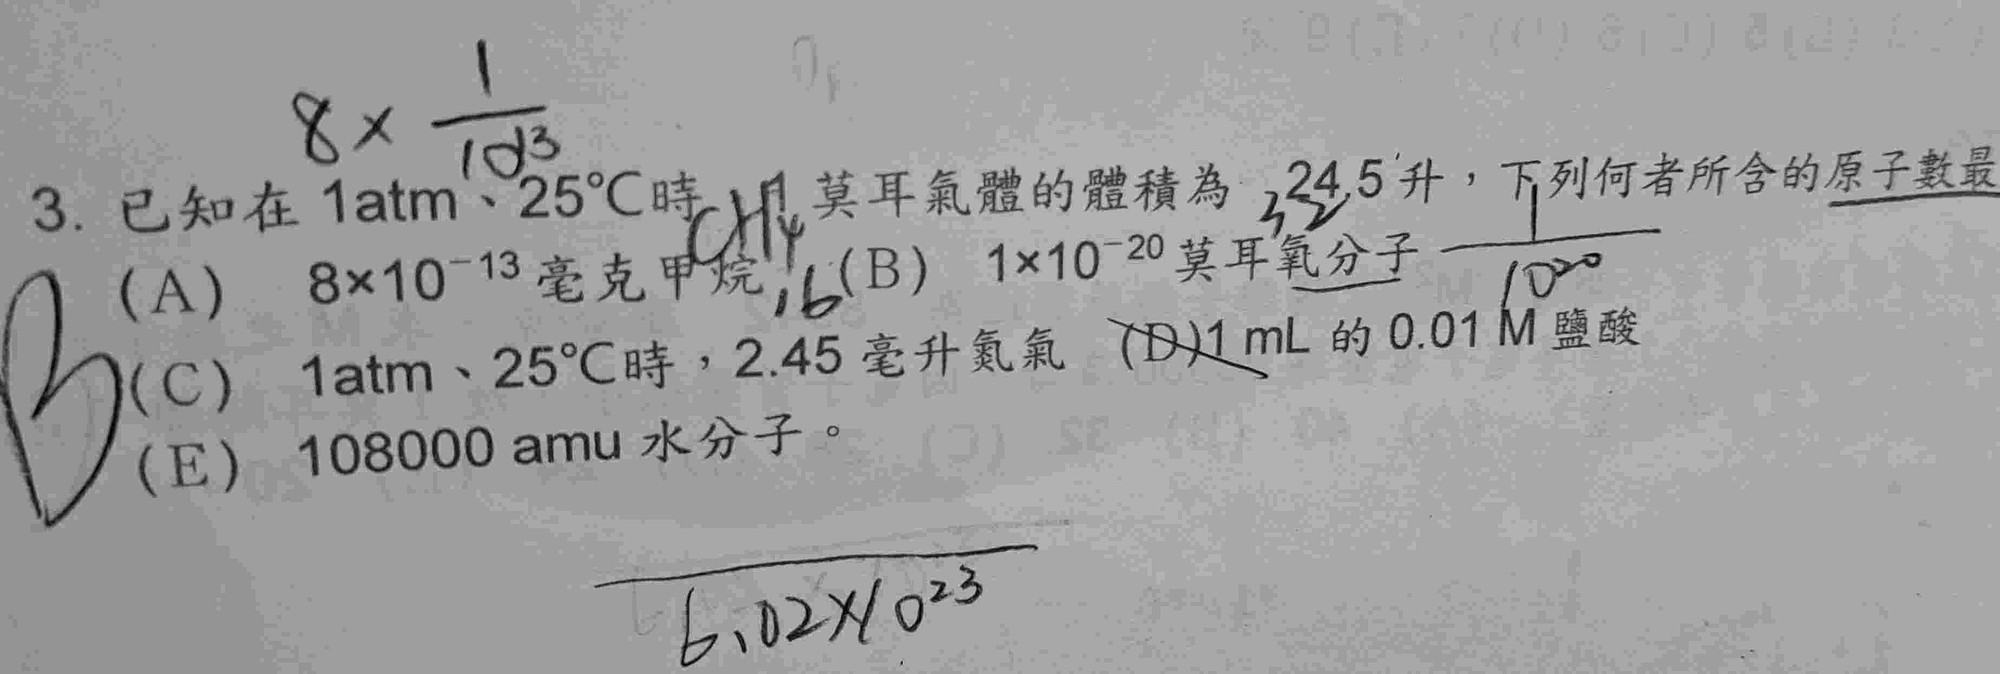 8 × 1/10¹³
3. 已知在 1atm、25℃時,1 莫耳氣體的體積為 24.5 升,下列何者所含的原子數最
CH₄ 32
(A) 8×10⁻¹³ 毫克甲烷 16 (B) 1×10⁻²⁰ 莫耳氧分子 1/10²⁰
(C) 1atm、25℃時,2.45 毫升氮氣 (D) 1 mL 的 0.01 M 鹽酸
B
(E) 108000 amu 水分子。
6.02×10²³